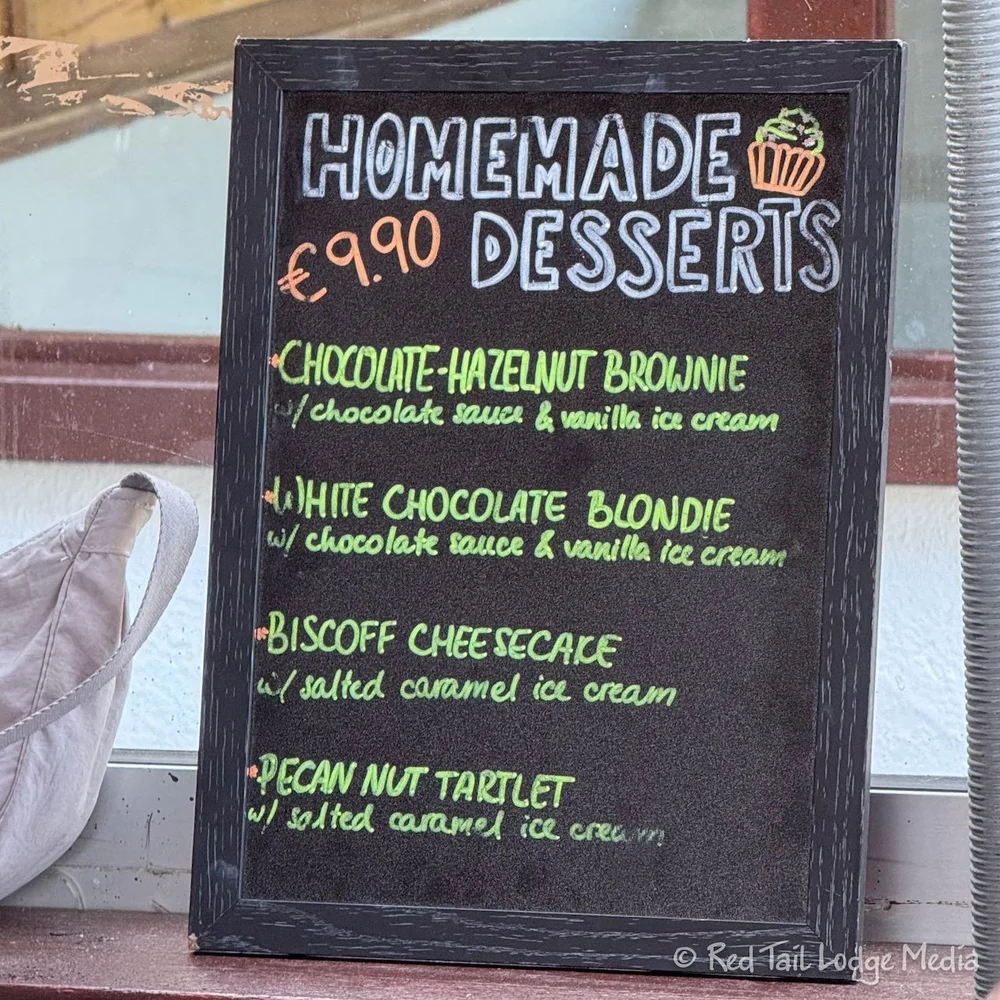 HOMEMADE
€9.90 DESSERTS
CHOCOLATE-HAZELNUT BROWNIE
w/ chocolate sauce & vanilla ice cream
WHITE CHOCOLATE BLONDIE
w/ chocolate sauce & vanilla ice cream
BISCOFF CHEESECAKE
w/ salted caramel ice cream
PECAN NUT TARTLET
w/ salted caramel ice cream
© Red Tail Lodge Media